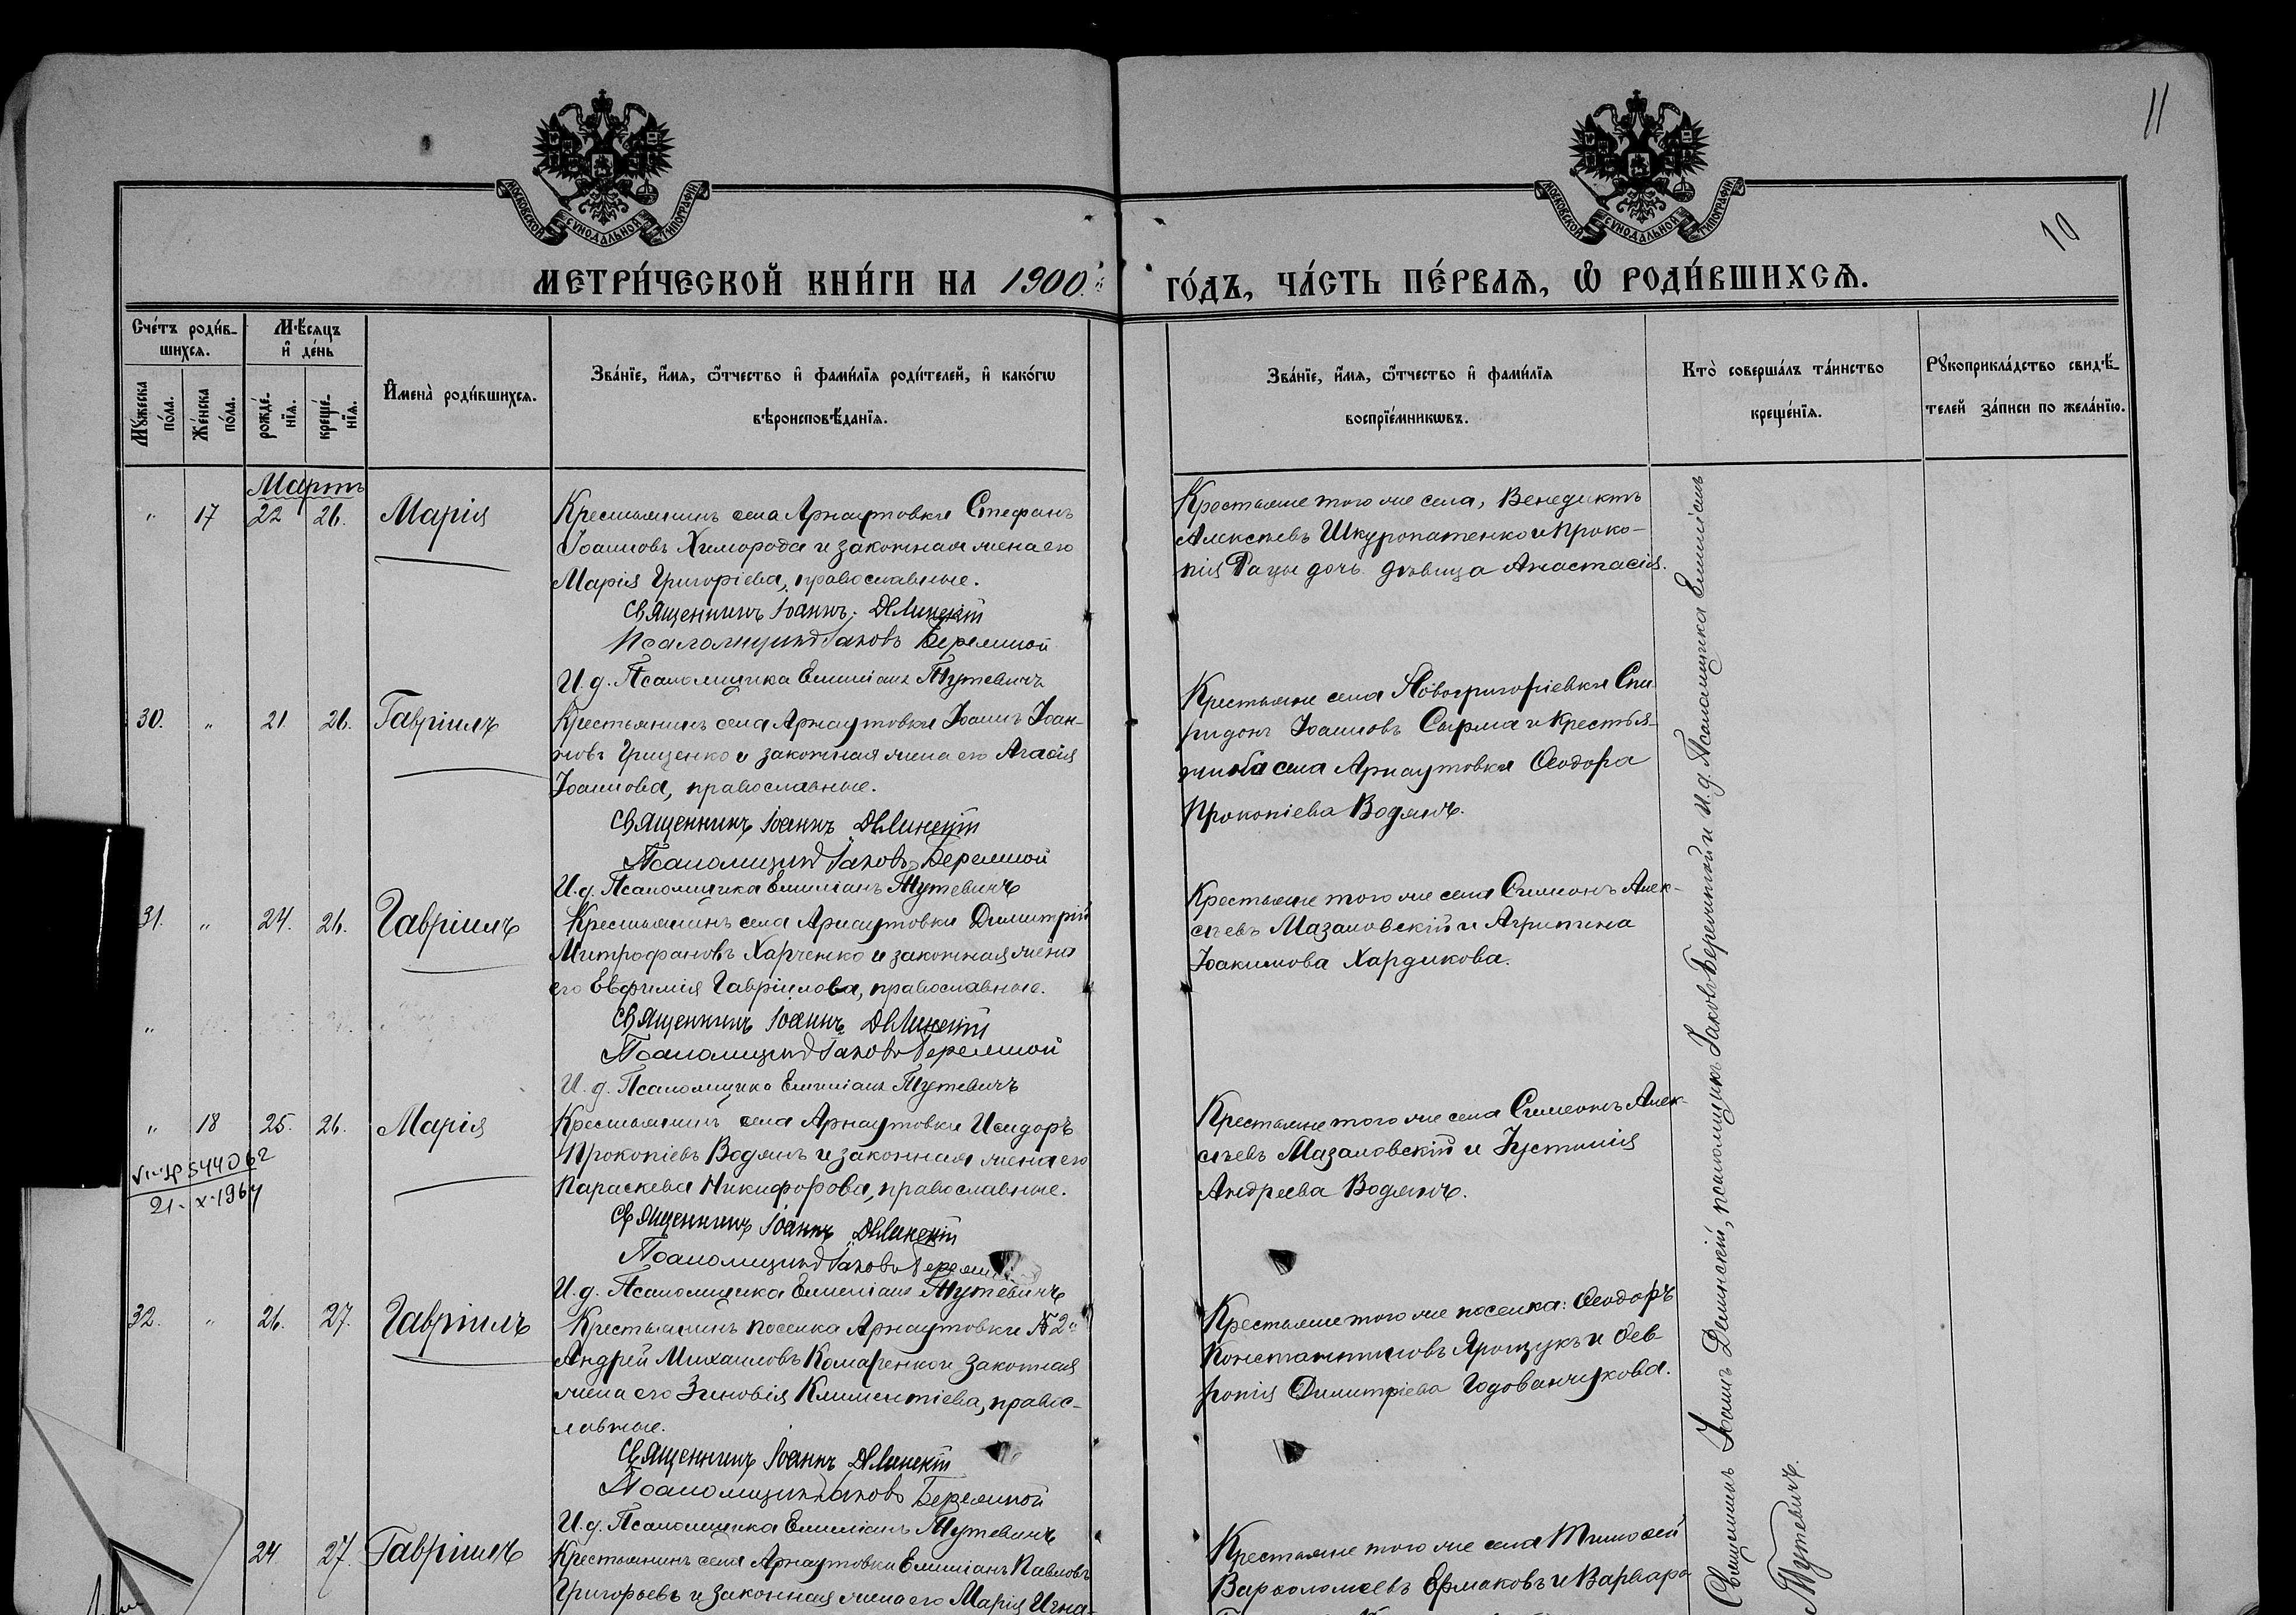 11
10
МОСКОВСКОЙ СѴНОДАЛЬНОЙ ТИПОГРАФІИ
МОСКОВСКОЙ СѴНОДАЛЬНОЙ ТИПОГРАФІИ
МЕТРИ́ЧЕСКОЙ КНИ́ГИ НА 1900й
ГО́ДЪ, ЧА́СТЬ ПЕ́РВАѦ, Ѽ РОДИ́ВШИХСѦ.
Сче́тъ роди́в-
шихсѧ.
Мѣ́сѧцъ
и҆ де́нь
Мꙋ́жеска
по́ла.
Же́нска
по́ла.
рожде́-
нїѧ.
креще́-
нїѧ.
И҆мена̀ роди́вшихсѧ.
Зва́нїе, и҆́мѧ, ѻ҆́тчество и҆ фами́лїѧ роди́телей, и҆ како́гѡ
вѣроисповѣ́данїѧ.
Зва́нїе, и҆́мѧ, ѻ҆́тчество и҆ фами́лїѧ
воспрїе́мникѡвъ.
Кто̀ соверша́лъ та́инство
креще́нїѧ.
Рꙋкоприкла́дство свидѣ́-
телей за́писи по жела́нїю.
Мартъ
" 17 22 26. Марія
Крестьянинъ села Арнаутовки Стефанъ
Іоанновъ Химорода и законная жена его
Марія Григоріева, православные.
Священникъ Іоаннъ Длинскій
Псаломщикъ Іаковъ Бережной
И. д. Псаломщика Емиліанъ Тутевичъ
Крестьяне того же села, Венедиктъ
Алексѣевъ Шкуропатенко и Проко-
пія Рацы дочь дѣвица Анастасія.
30. " 21 26. Гавріилъ
Крестьянинъ села Арнаутовки Іоаннъ Іоан-
новъ Грищенко и законная жена его Агафія
Іоаннова, православные.
Священникъ Іоаннъ Длинскій
Псаломщикъ Іаковъ Бережной
И. д. Псаломщика Емиліанъ Тутевичъ
Крестьяне села Новогригоріевки Спи-
ридонъ Іоанновъ Сырма и крестья-
нинка села Арнаутовки Ѳеодора
Прокопіева Водянъ.
31. " 24. 26. Гавріилъ
Крестьянинъ села Арнаутовки Димитрій
Митрофановъ Харченко и законная жена
его Евфимія Гавріилова, православные.
Священникъ Іоаннъ Длинскій
Псаломщикъ Іаковъ Бережной
И. д. Псаломщика Емиліанъ Тутевичъ
Крестьяне того же села Симеонъ Алек-
сѣевъ Мазаловскій и Агрипина
Іоакимова Хардикова.
"
" 18 25. 26. Марія
544062
21-X-1967
Крестьянинъ села Арнаутовки Исидоръ
Прокопіевъ Водянъ и законная жена его
Параскева Никифорова, православные.
Священникъ Іоаннъ Длинскій
Псаломщикъ Іаковъ Бережной
И. д. Псаломщика Емиліанъ Тутевичъ
Крестьяне того же села Симеонъ Алек-
сѣевъ Мазаловскій и Іустинія
Андреева Водянъ.
32. " 26. 27. Гавріилъ
Крестьянинъ поселка Арнаутовки №2й
Андрей Михаиловъ Комаренко и законная
жена его Зиновія Климентіева, правос-
лавные.
Священникъ Іоаннъ Длинскій
Псаломщикъ Іаковъ Бережной
И. д. Псаломщика Емиліанъ Тутевичъ
Крестьяне того же поселка: Ѳеодоръ
Константиновъ Ярощукъ и Фев-
ронія Димитріева Годованчукова.
24 27. Гавріилъ
Крестьянинъ села Арнаутовки Емиліанъ Павловъ
Григорьевъ и законная жена его Марія Игна-
Крестьяне того же села Тимоѳей
Варѳоломеевъ Ермаковъ и Варвара
Священникъ Іоаннъ Длинскій, псаломщикъ Іаковъ Бережной и и. д. Псаломщика Емиліанъ
Тутевичъ.